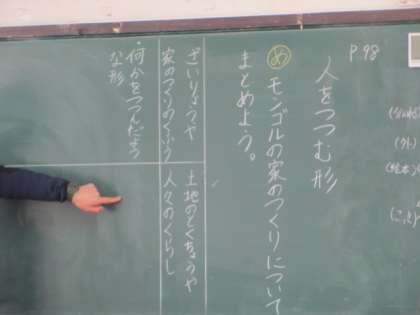 P98
人をつつむ形
め モンゴルの家のつくりについて
まとめよう。
ざいりょうや
家のつくりのくふう
土地のとくちょうや
人々のくらし
・何かをつつんだよう
な形
(外)